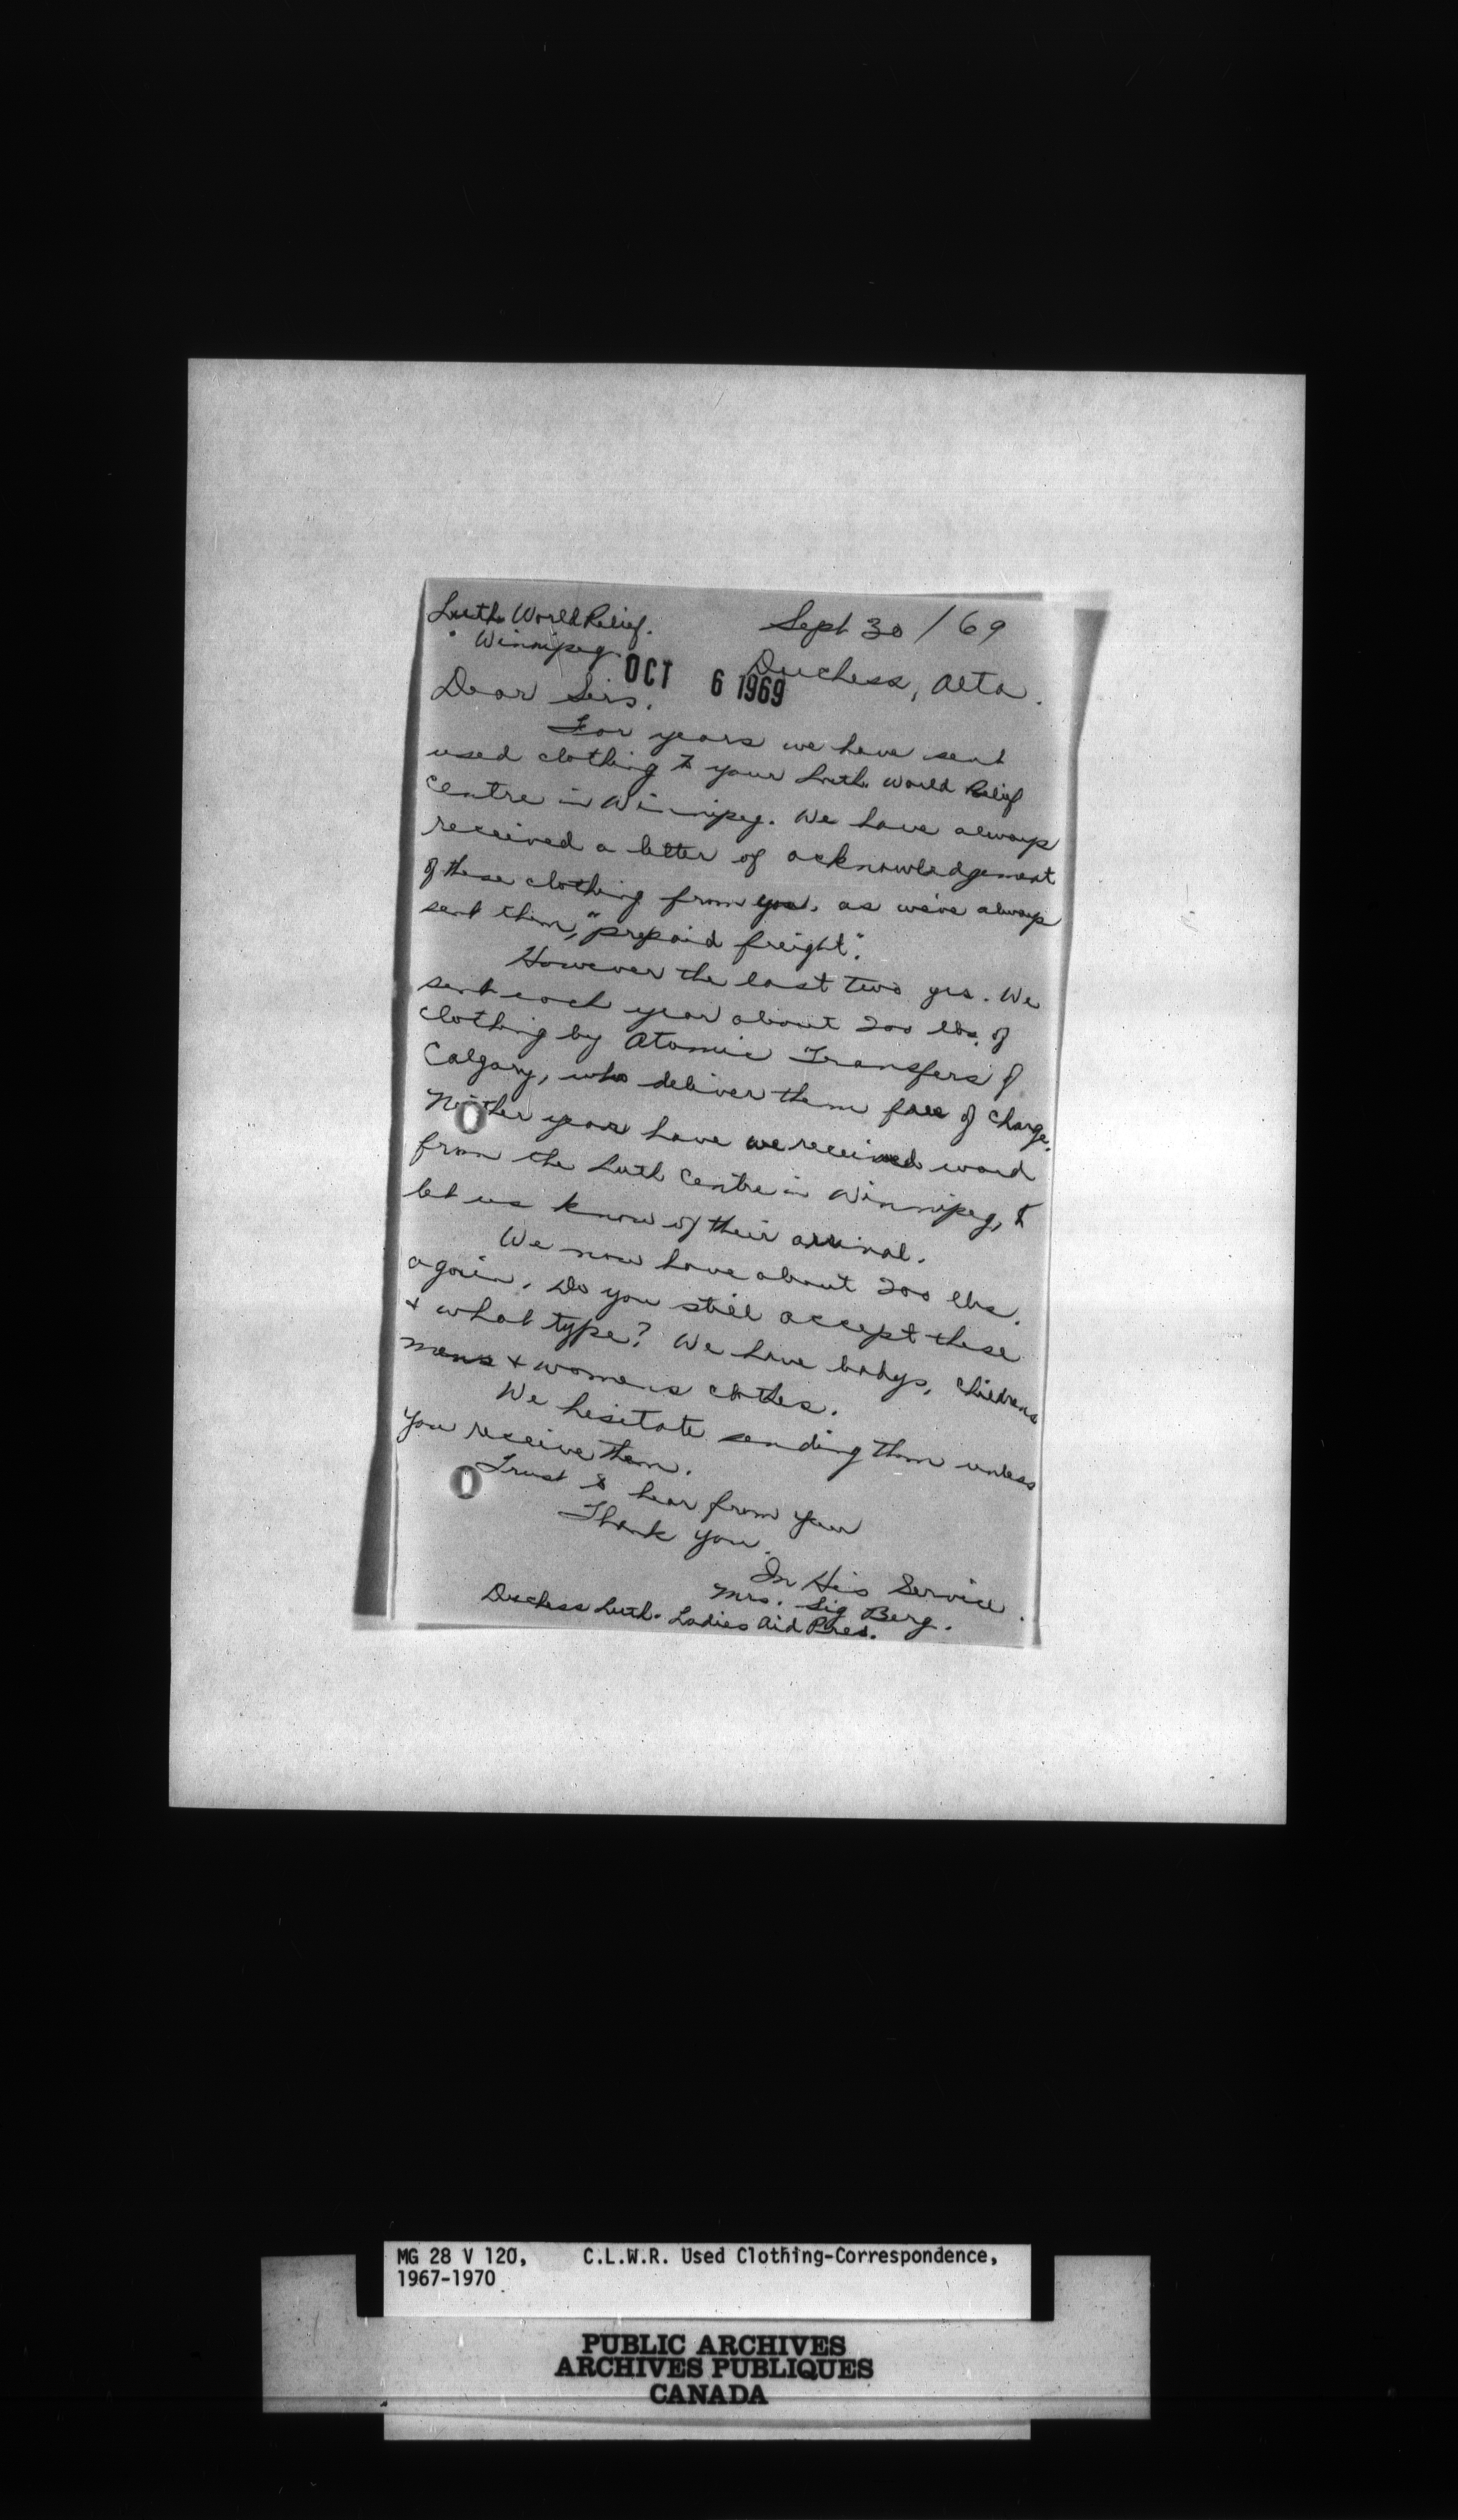 Luth. World Relief.
Winnipeg.
Sept 30 / 69
Duchess, Alta.
OCT 6 1969
Dear Sirs.
For years we have sent
used clothing to your Luth. World Relief
Centre in Winnipeg. We have always
received a letter of acknowledgement
of these clothing from you. as we've always
sent them, "prepaid freight".
However the last two yrs. We
sent each year about 200 lbs. of
clothing by Atomic Transfers of
Calgary, who deliver them free of charge.
Neither year have we received word
from the Luth Centre in Winnipeg, to
let us know of their arrival.
We now have about 200 lbs.
again. Do you still accept these
& what type? We have babys, childrens
mens & womens clothes.
We hesitate sending them unless
you receive them.
Trust to hear from you
Thank you.
In His Service.
Mrs. Sig Berg.
Duchess Luth. Ladies Aid Pres.
MG 28 V 120, C.L.W.R. Used Clothing-Correspondence,
1967-1970
PUBLIC ARCHIVES
ARCHIVES PUBLIQUES
CANADA